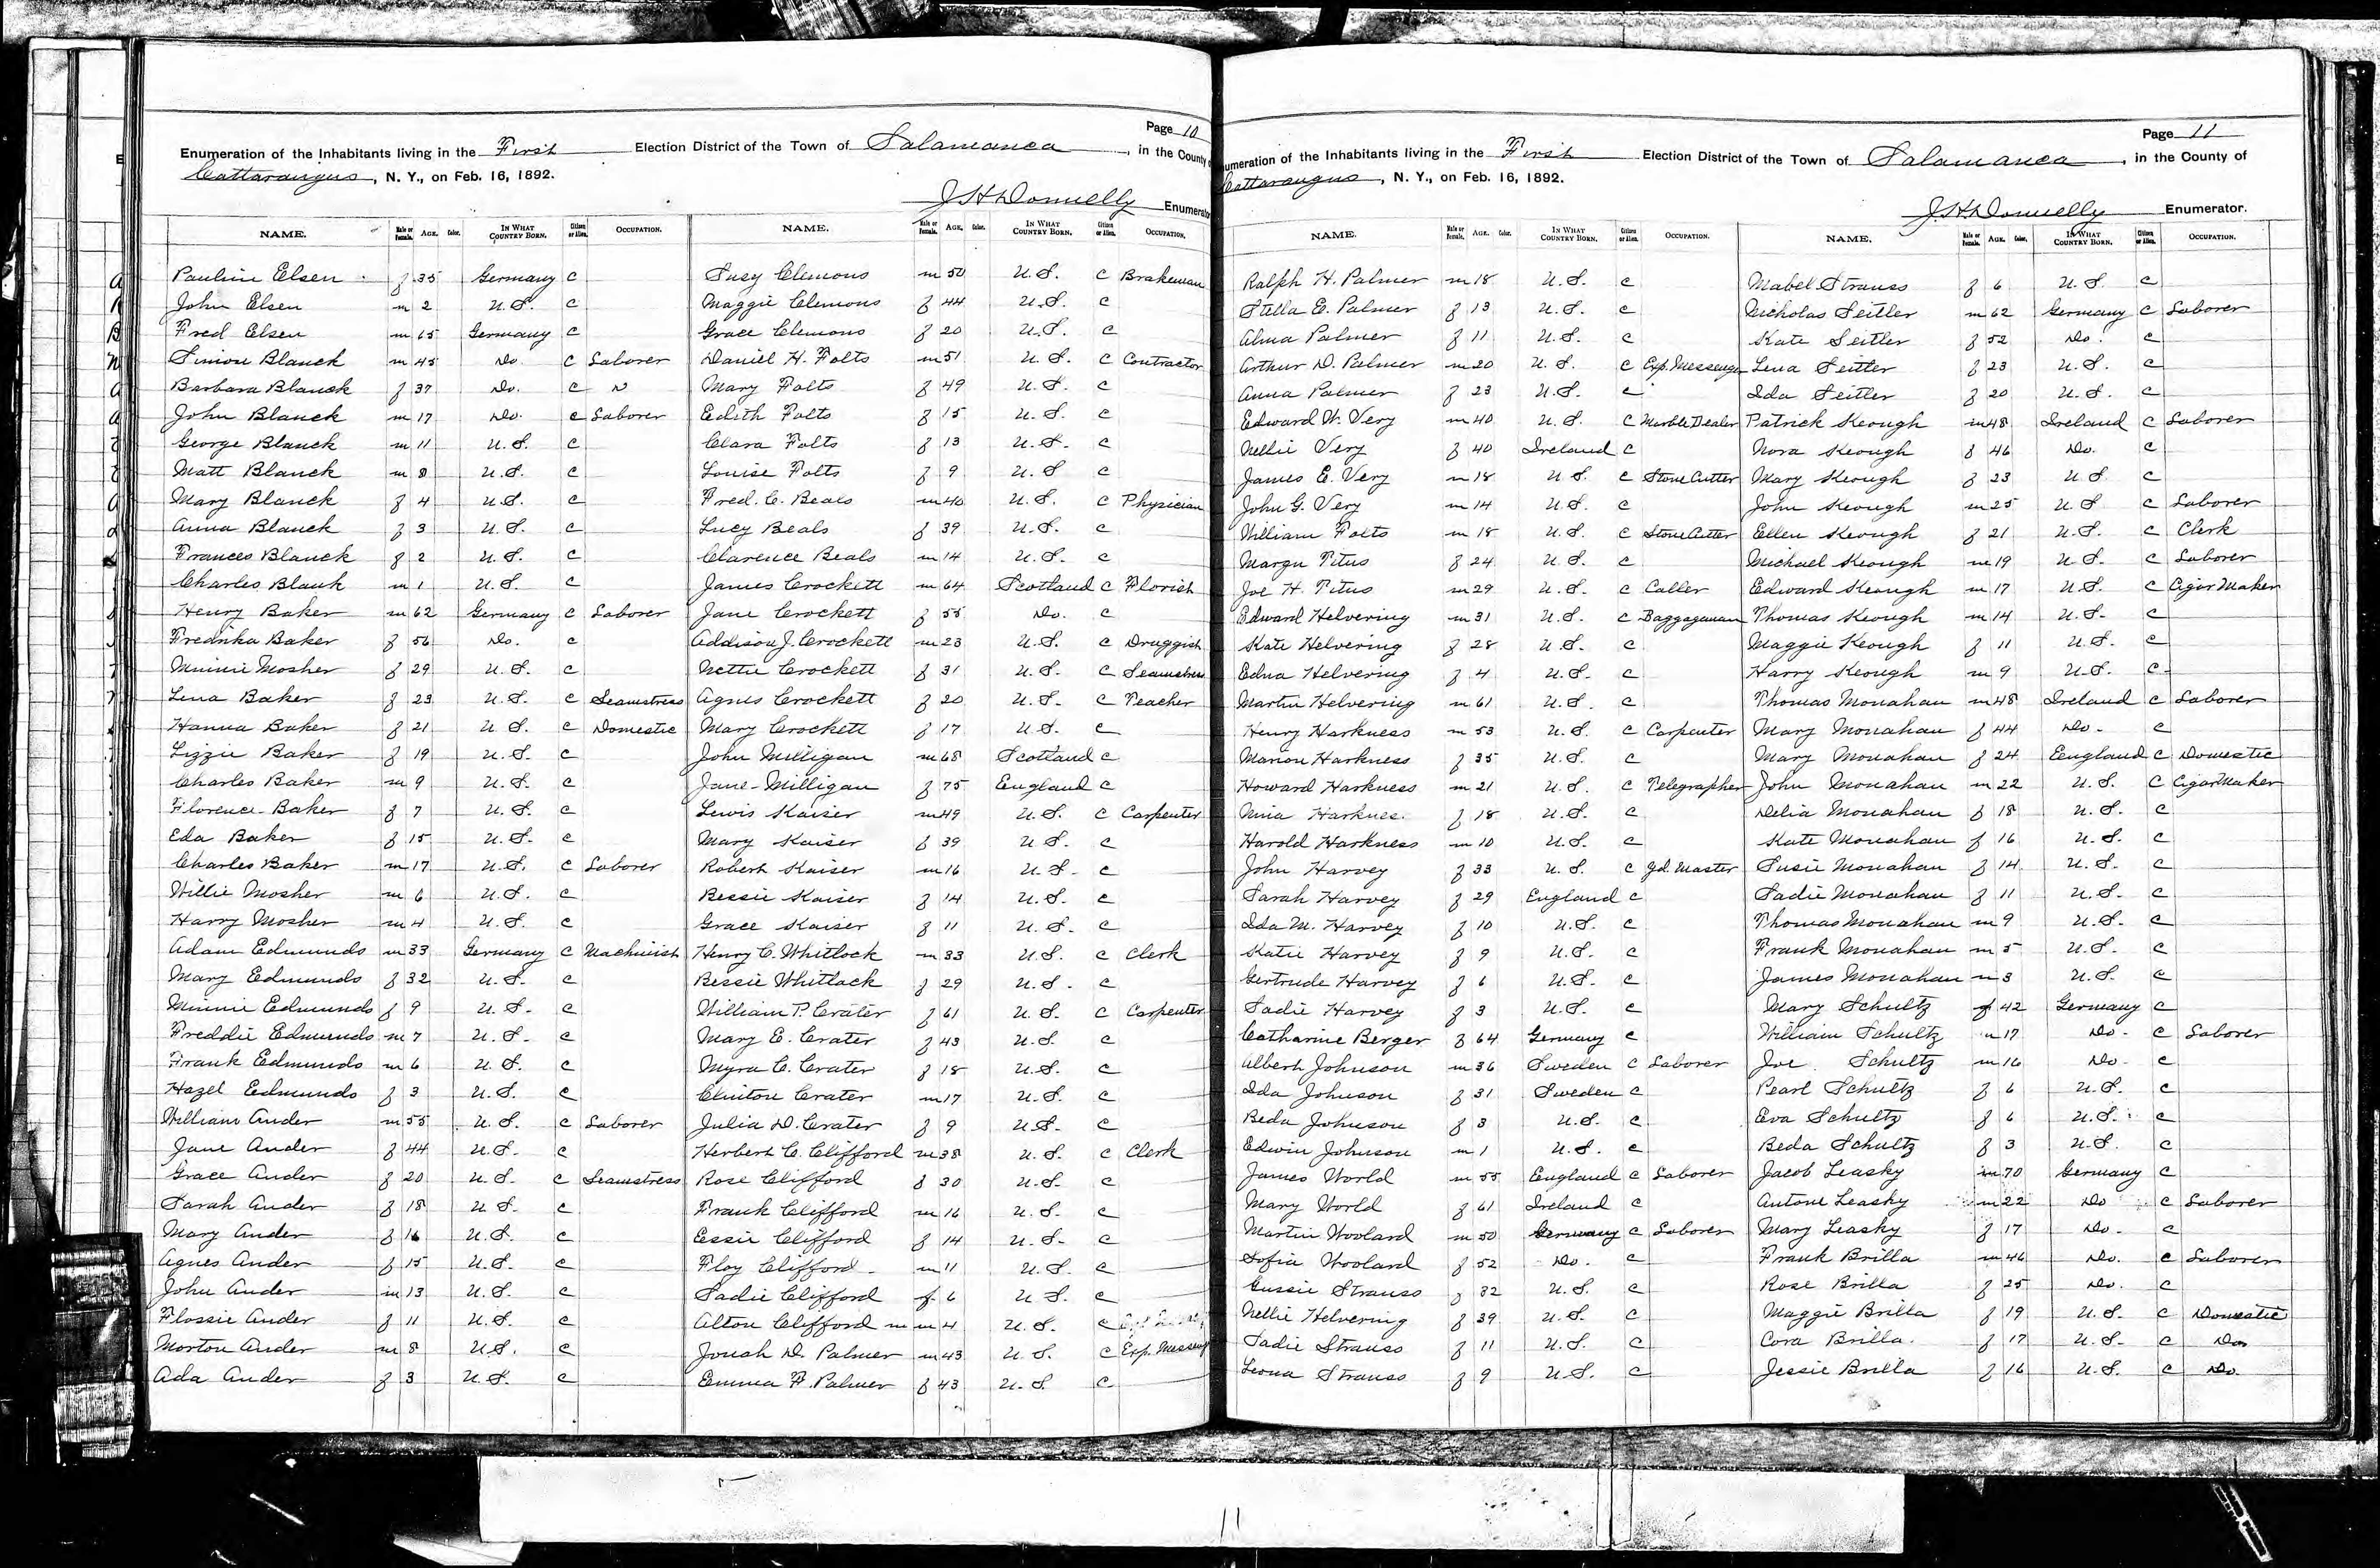 Page 10
Enumeration of the Inhabitants living in the First Election District of the Town of Salamanca, in the County
Cattaraugus, N. Y., on Feb. 16, 1892.
J H Donnelly Enumerator
NAME. Male or Female. AGE. Color. IN WHAT COUNTRY BORN. Citizen or Alien. OCCUPATION.
Pauline Elsen f 35 Germany C
John Elsen m 2 U.S. C
Fred Elsen m 65 Germany C
Simion Blanck m 45 Do. C Laborer
Barbara Blanck f 37 Do. C
John Blanck m 17 Do. C Laborer
George Blanck m 11 U.S. C
Matt Blanck m 8 U.S. C
Mary Blanck f 4 U.S. C
Anna Blanck f 3 U.S. C
Frances Blanck f 2 U.S. C
Charles Blank m 1 U.S. C
Henry Baker m 62 Germany C Laborer
Fredrika Baker f 56 Do. C
Minnie Mosher f 29 U.S. C
Lena Baker f 23 U.S. C Seamstress
Hanna Baker f 21 U.S. C Domestic
Lizzie Baker f 19 U.S. C
Charles Baker m 9 U.S. C
Florence Baker f 7 U.S. C
Eda Baker f 15 U.S. C
Charles Baker m 17 U.S. C Laborer
Willie Mosher m 6 U.S. C
Harry Mosher m 4 U.S. C
Adam Edmunds m 33 Germany C Machinist
Mary Edmunds f 32 U.S. C
Minnie Edmunds f 9 U.S. C
Freddie Edmunds m 7 U.S. C
Frank Edmunds m 6 U.S. C
Hazel Edmunds f 3 U.S. C
William Ander m 55 U.S. C Laborer
Jane Ander f 44 U.S. C
Grace Ander f 20 U.S. C Seamstress
Sarah Ander f 18 U.S. C
Mary Ander f 16 U.S. C
Agnes Ander f 15 U.S. C
John Ander m 13 U.S. C
Flossie Ander f 11 U.S. C
Morton Ander m 8 U.S. C
Ada Ander f 3 U.S. C
NAME. Male or Female. AGE. Color. IN WHAT COUNTRY BORN. Citizen or Alien. OCCUPATION.
Susy Clemons m 50 U.S. C Brakeman
Maggie Clemons f 44 U.S. C
Grace Clemons f 20 U.S. C
Daniel H. Folts m 51 U.S. C Contractor
Mary Folts f 49 U.S. C
Edith Folts f 15 U.S. C
Clara Folts f 13 U.S. C
Louise Folts f 9 U.S C
Fred. C. Beals m 40 U.S. C Physician
Lucy Beals f 39 U.S. C
Clarence Beals m 14 U.S. C
James Crockett m 64 Scotland C Florist
Jane Crockett f 55 Do. C
Addison J. Crockett m 23 U.S. C Druggist
Nettie Crockett f 31 U.S. C Seamstress
Agnes Crockett f 20 U.S. C Teacher
Mary Crockett f 17 U.S. C
John Milligan m 68 Scotland C
Jane Milligan f 75 England C
Lewis Kaiser m 49 U.S. C Carpenter
Mary Kaiser f 39 U.S. C
Robert Kaiser m 16 U.S. C
Bessie Kaiser f 14 U.S. C
Grace Kaiser f 11 U.S. C
Henry C. Whitlock m 33 U.S. C Clerk
Bessie Whitlock f 29 U.S. C
William P. Crater f 61 U.S. C Carpenter
Mary E. Crater f 43 U.S. C
Myra C. Crater f 18 U.S. C
Clinton Crater m 17 U.S. C
Julia D. Crater f 9 U.S. C
Herbert C. Clifford m 38 U.S. C Clerk
Rose Clifford f 30 U.S. C
Frank Clifford m 16 U.S. C
Essie Clifford f 14 U.S. C
Floy Clifford m 11 U.S. C
Sadie Clifford f 6 U.S. C
Alton Clifford m m 4 U.S. C
Jonah D. Palmer m 43 U.S. C Exp. Messeng
Emma F. Palmer f 43 U.S. C
Page 11
umeration of the Inhabitants living in the First Election District of the Town of Salamanca, in the County of
Cattaraugus, N. Y., on Feb. 16, 1892.
J. H. Donnelly Enumerator.
NAME. Male or Female. AGE. Color. IN WHAT COUNTRY BORN. Citizen or Alien. OCCUPATION.
Ralph H. Palmer m 18 U.S. C
Stella E. Palmer f 13 U.S. C
Alma Palmer f 11 U.S. C
Arthur D. Palmer m 20 U.S. C Exp. Messenger
Anna Palmer f 23 U.S. C
Edward W. Very m 40 U.S. C Marble Dealer
Nellie Very f 40 Ireland C
James E. Very m 18 U.S. C Stone Cutter
John G. Very m 14 U.S. C
William Folts m 18 U.S. C Stone Cutter
Margu Titus f 24 U.S. C
Joe H. Titus m 29 U.S. C Caller
Edward Helvering m 31 U.S. C Baggageman
Kate Helvering f 28 U.S. C
Edna Helvering f 4 U.S. C
Martin Helvering m 61 U.S. C
Henry Harkness m 53 U.S. C Carpenter
Marion Harkness f 35 U.S. C
Howard Harkness m 21 U.S. C Telegrapher
Nina Harknes. f 18 U.S. C
Harold Harkness m 10 U.S. C
John Harvey f 33 U.S. C Yd. Master
Sarah Harvey f 29 England C
Ida M. Harvey f 10 U.S. C
Katie Harvey f 9 U.S. C
Gertrude Harvey f 6 U.S. C
Sadie Harvey f 3 U.S. C
Catharine Berger f 64 Germany C
Albert Johnson m 36 Sweden C Laborer
Ida Johnson f 31 Sweden C
Beda Johnson f 3 U.S. C
Edwin Johnson m 1 U.S. C
James World m 55 England C Laborer
Mary World f 61 Ireland C
Martin Wooland m 50 Germany C Laborer
Sofia Wooland f 52 Do. C
Gussie Strauss f 32 U.S. C
Nellie Helvering f 39 U.S. C
Sadie Strauss f 11 U.S. C
Leona Strauss f 9 U.S. C
NAME. Male or Female. AGE. Color. IN WHAT COUNTRY BORN. Citizen or Alien. OCCUPATION.
Mabel Strauss f 6 U.S. C
Nicholas Seitler m 62 Germany C Laborer
Kate Seitler f 52 Do. C
Lena Seitler f 23 U.S. C
Ida Seitler f 20 U.S. C
Patrick Keough m 48 Ireland C Laborer
Nora Keough f 46 Do. C
Mary Keough f 23 U.S C
John Keough m 25 U.S C Laborer
Ellen Keough f 21 U.S. C Clerk
Michael Keough m 19 U.S. C Laborer
Edward Keough m 17 U.S. C Cigar Maker
Thomas Keough m 14 U.S. C
Maggie Keough f 11 U.S. C
Harry Keough m 9 U.S. C
Thomas Monahan m 48 Ireland C Laborer
Mary Monahan f 44 Do. C
Mary Monahan f 24 England C Domestic
John Monahan m 22 U.S. C Cigar Maker
Delia Monahan f 18 U.S. C
Kate Monahan f 16 U.S. C
Susie Monahan f 14 U.S. C
Sadie Monahan f 11 U.S. C
Thomas Monahan m 9 U.S. C
Frank Monahan m 5 U.S. C
James Monahan m 3 U.S. C
Mary Schultz f 42 Germany C
William Schultz m 17 Do. C Laborer
Joe Schultz m 16 Do. C
Pearl Schultz f 6 U.S. C
Eva Schultz f 6 U.S. C
Beda Schultz f 3 U.S. C
Jacob Leasky m 70 Germany C
Antone Leasky m 22 Do C Laborer
Mary Leasky f 17 Do. C
Frank Brilla m 46 Do. C Laborer
Rose Brilla f 25 Do. C
Maggie Brilla f 19 U.S. C Domestic
Cora Brilla. f 17 U.S. C Do
Jessie Brilla f 16 U.S. C Do.